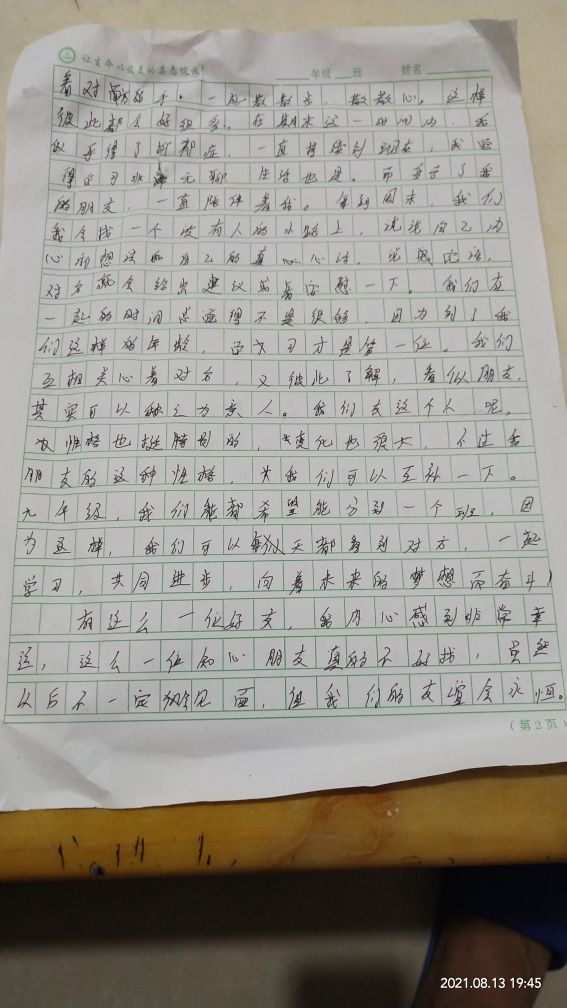 让生命以最美的姿态绽放!
年级 班 姓名
着对方的手。一起散散步,散散心。这样
彼此都会好很多。在期末这一时间内,我
似乎得了抑郁症,一直持续到现在,我觉
得学习班 无聊,生活也是。而 了我
的朋友,一直陪伴着我。每到周末,我们
我会找一个没有人的小路上,说说自己内
心和想法和自己的真心心话,说感完话,
对方就会给出建议或者安慰一下。我们友
一起的时间总觉得不是很够,因为到了我
们这样的年龄,学习才是第一位。我们
互相关心着对方,又彼此了解,看似朋友,
其实可以称之为亲人。我们友这个人呢,
性格也挺特别的,变化也很大,不过我
朋友的这种性格,我们可以互补一下。
九年级,我们能都希望能分到一个班,因
为这样,我们可以 天都看到对方,一起
学习,共同进步,向着未来的梦想而奋斗!
有这么一位好友,我内心感到非常幸
运,这么一位知心朋友真的不好找,虽然
以后不一定 会见面,但我们的友谊会永恒。
(第2页)
2021.08.13 19:45